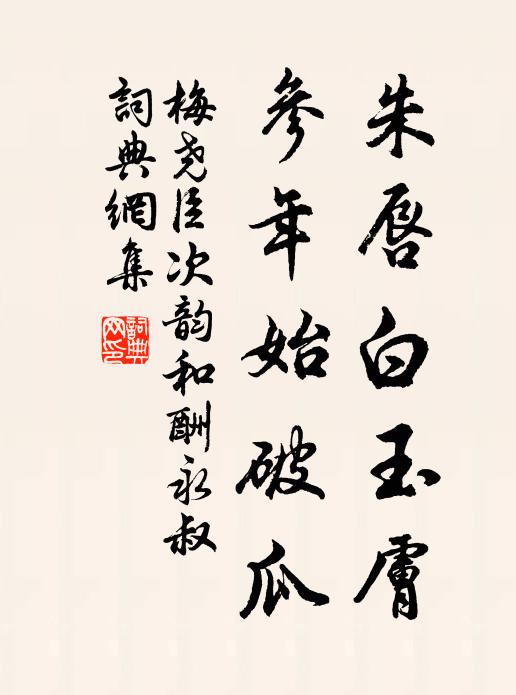 朱唇白玉膚
參年始破瓜
梅堯臣次韵和酬永叔
詞典網集
詞典網印